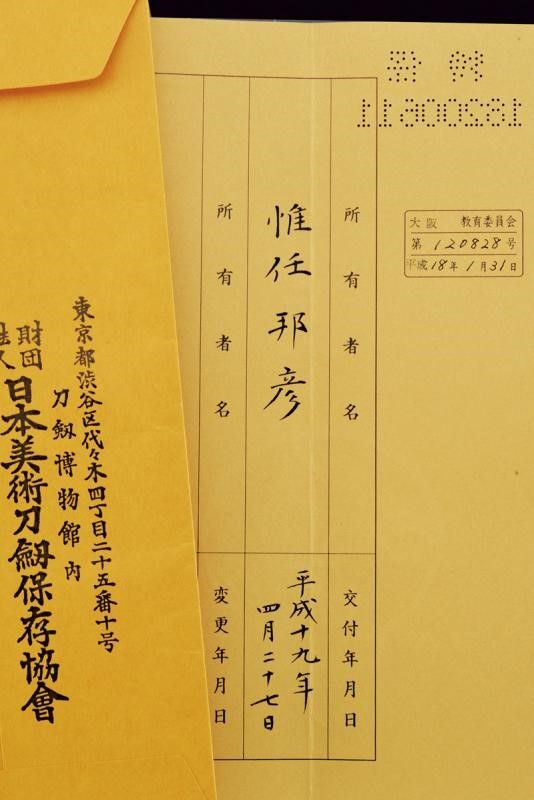 大阪 教育委員会
第 120828 号
平成18年 1月31日
所有者名
交付年月日
惟任邦彦
平成十九年
四月二十七日
所有者名
変更年月日
東京都渋谷区代々木四丁目二十五番十号
刀劔博物館内
財団
日本美術刀劔保存協會